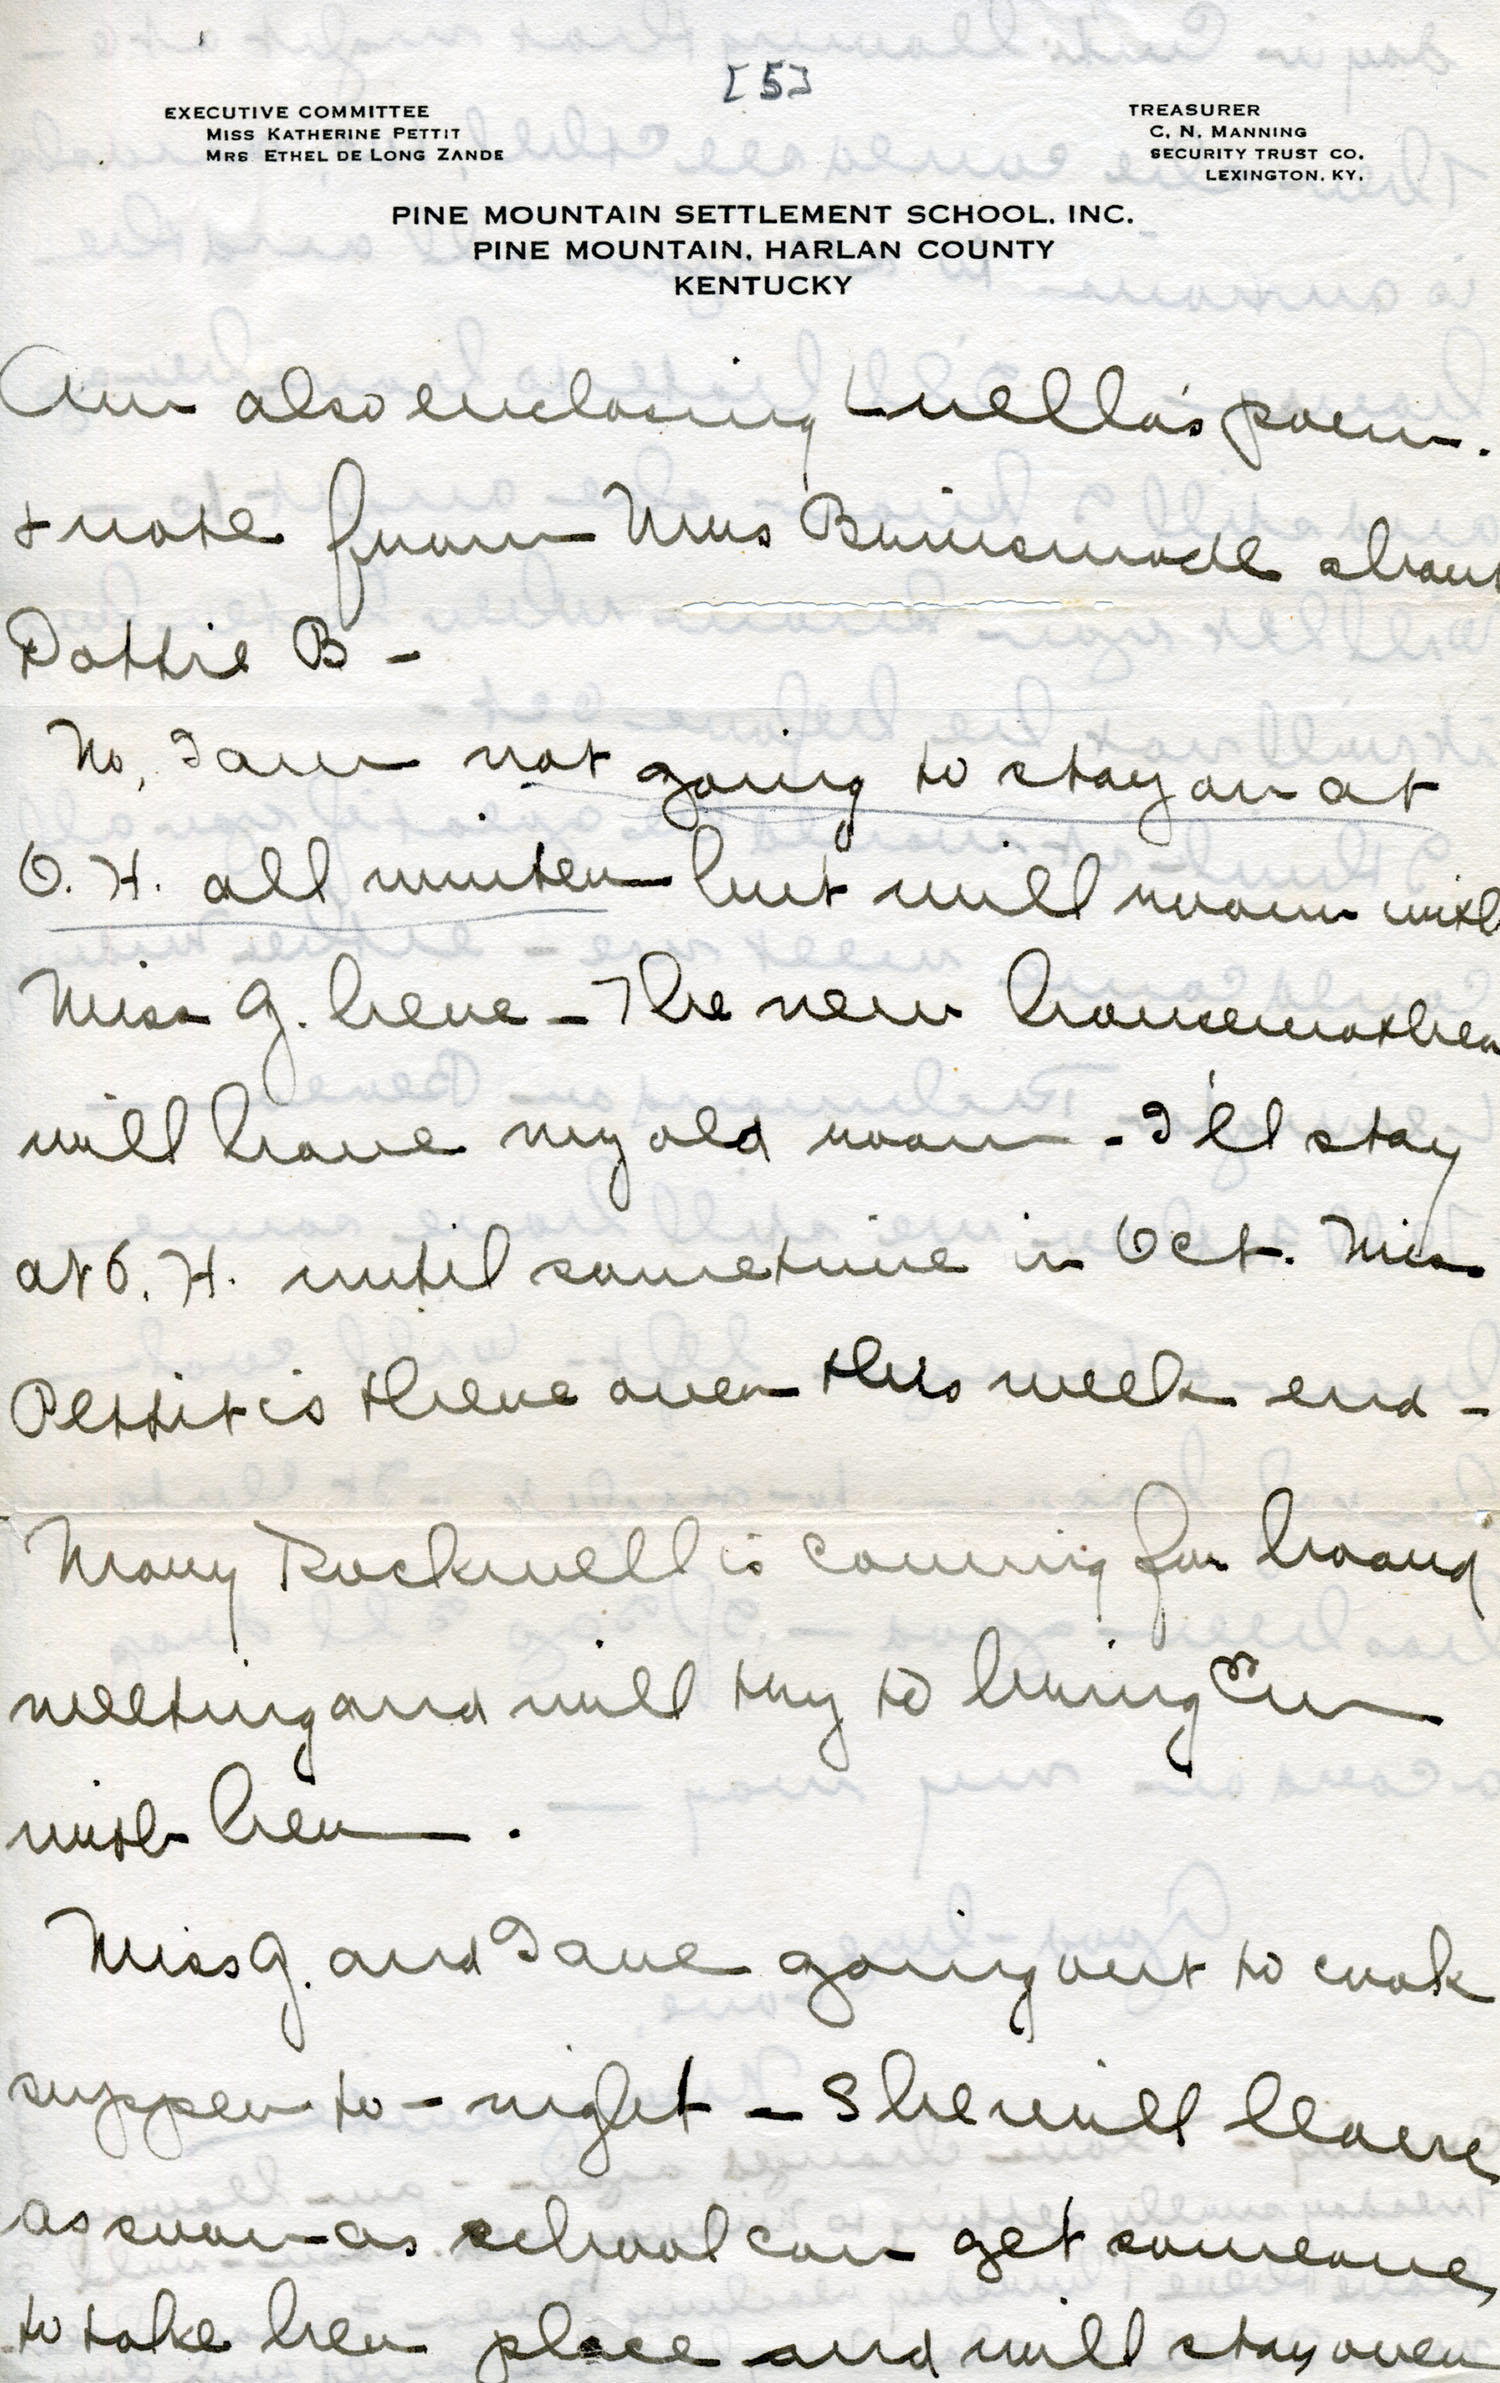 [5]
EXECUTIVE COMMITTEE
MISS KATHERINE PETTIT
MRS ETHEL DE LONG ZANDE
TREASURER
C. N. MANNING
SECURITY TRUST CO.
LEXINGTON, KY.
PINE MOUNTAIN SETTLEMENT SCHOOL, INC.
PINE MOUNTAIN, HARLAN COUNTY
KENTUCKY
Am also enclosing Luella's poem.
+ note from about
Dottie B -
No, I am not going to stay on at
O. H. all winter but will room with
Miss G. here - The new housemother
will have my old room - I'll stay
at O. H. until sometime in Oct. Miss
Pettit is there over this week end -
Mary Rockwell is coming for board
meeting and will try to bring Em
with her.
Miss G. and I are going out to cook
supper to-night - She will leave
as soon as school can get someone
to take her place and will stay over